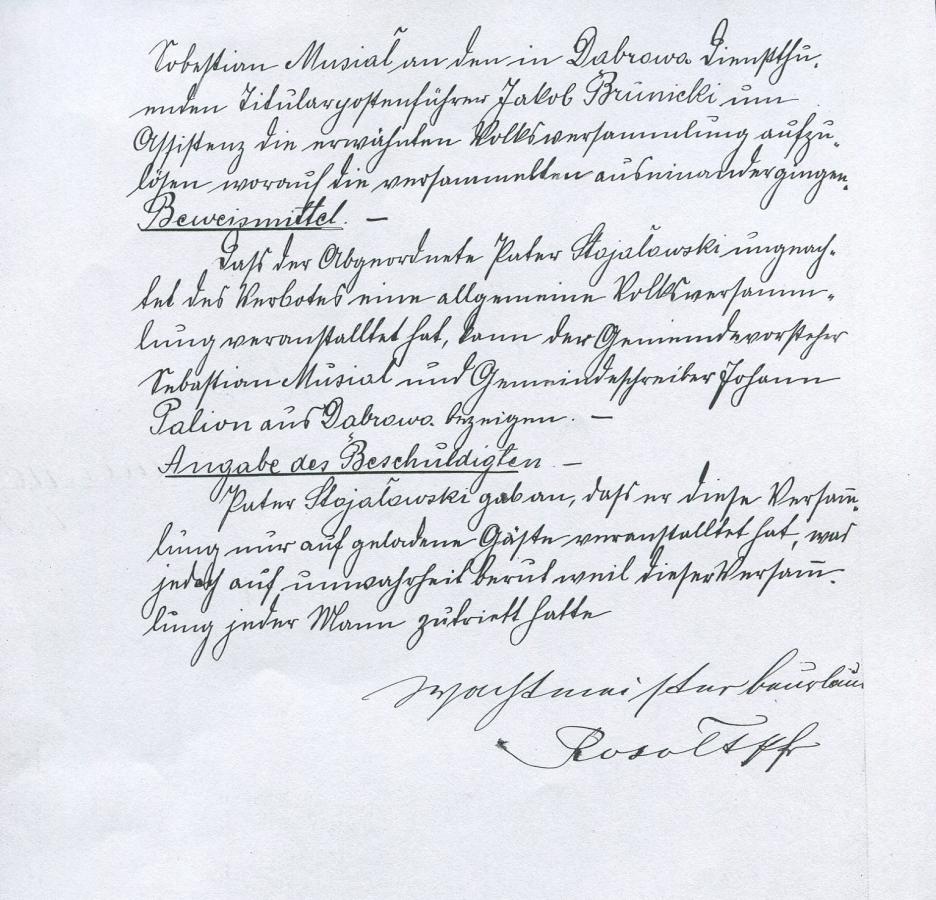 Sobestian Musiał an den in Dabrowa Dienstthu-
enden Titularpostenführer Jakob Brunicki um
Assistenz die erwähnten Volksversammlung aufzu-
lösen worauf die versammelten auseinandergingen.
Beweismittel. —
Dass der Abgeordnete Pater Stojałowski ungeach-
tet des Verbotes eine allgemeine Volksversamm-
lung veranstalltet hat, kann der Gemeindevorsteher
Sebastian Musiał und Gemeindeschreiber Johann
Palion aus Dabrowa bezeigen. —
Angabe des Beschuldigten —
Pater Stojałowski gab an, dass er diese Versam̄-
lung nur auf geladene Gäste veranstalltet hat, was
jedoch auf unwahrheit berut weil dieser Versam̄-
lung jeder Mann zutriett hatte
Wachtmeister beurlau
Rosoł Tpfr